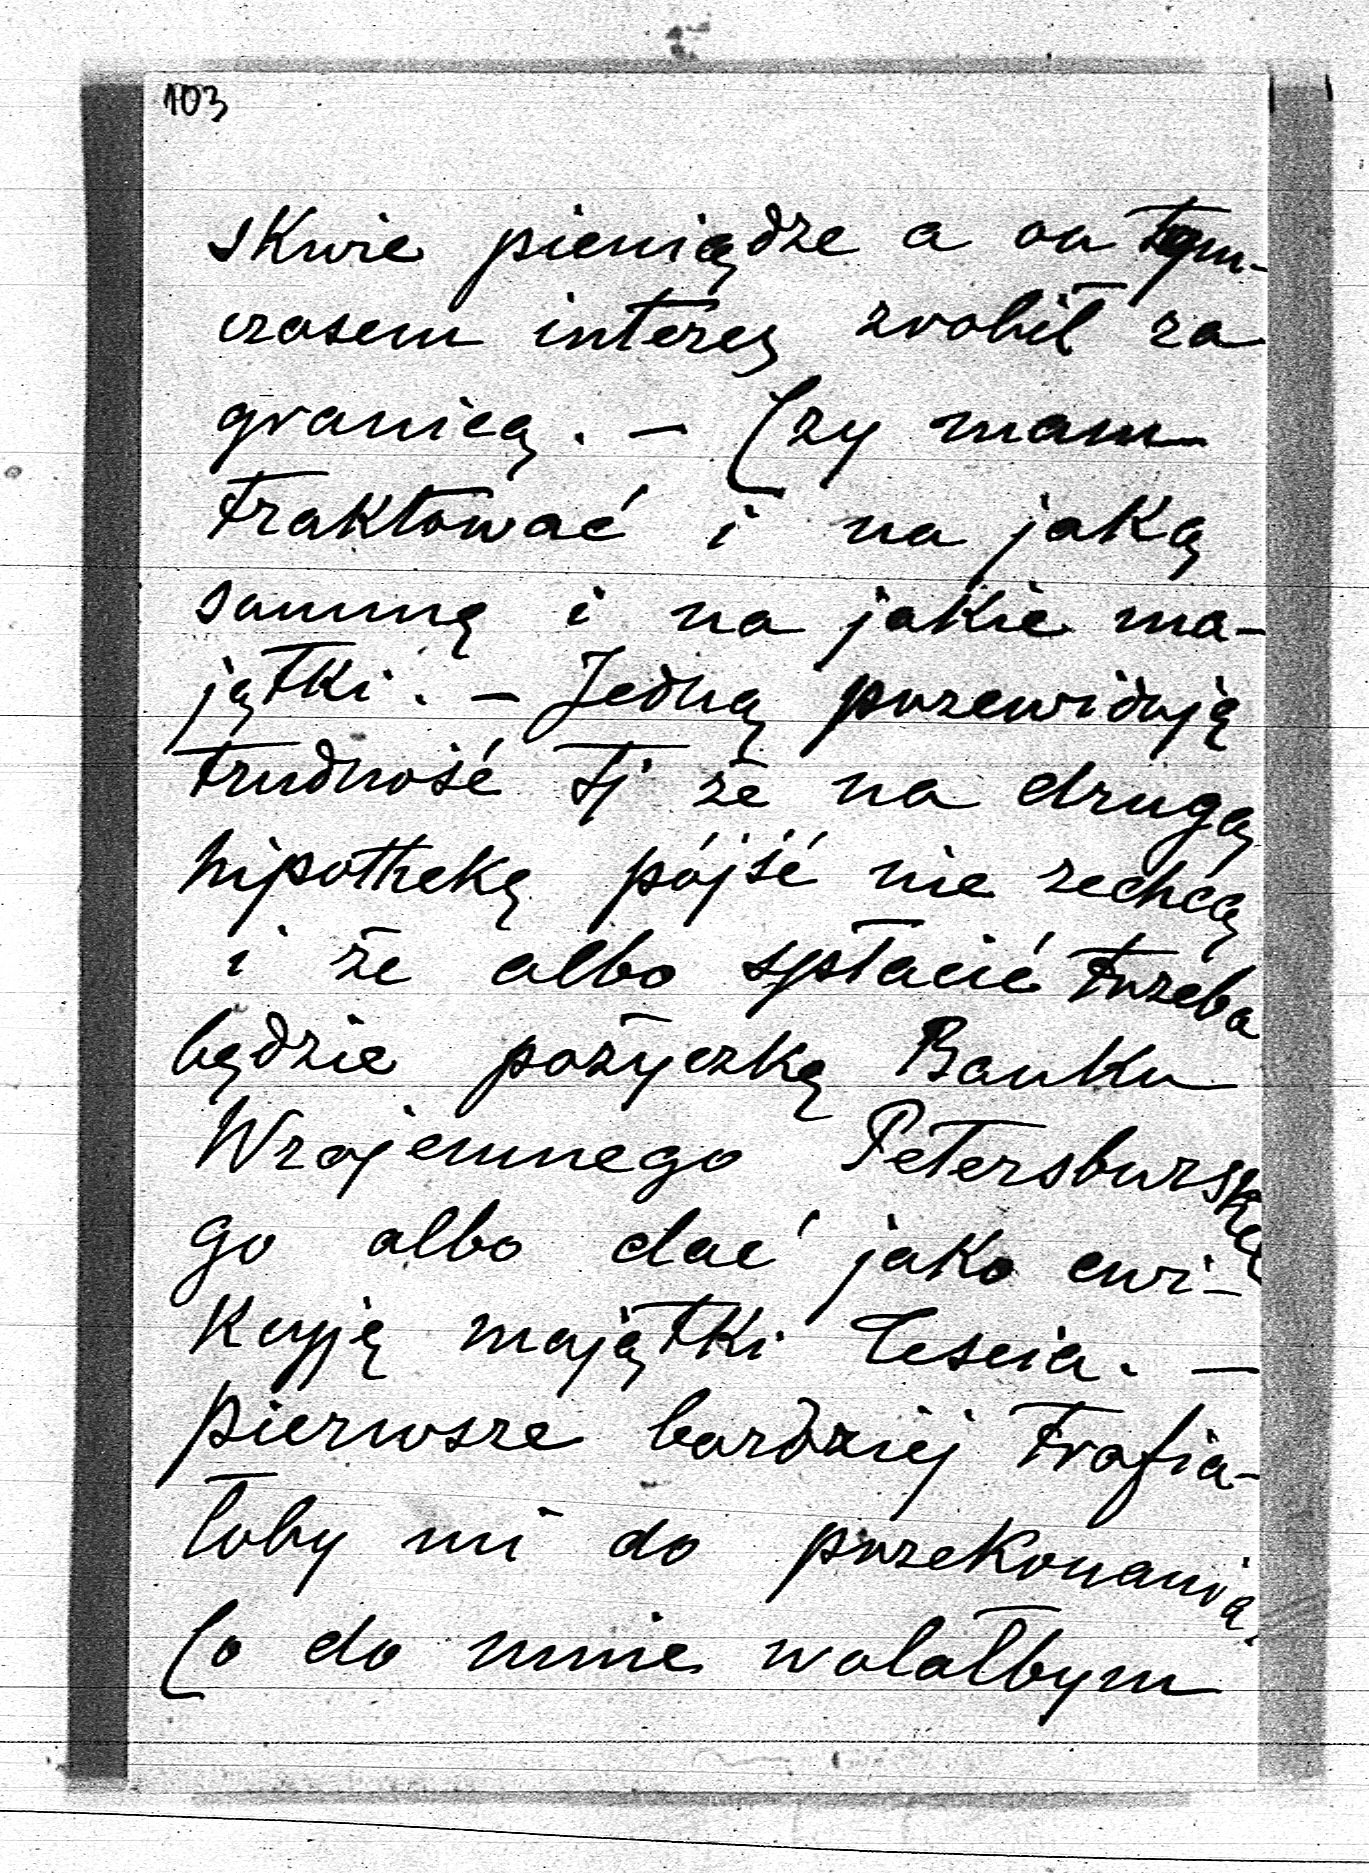 103
skwie pieniądze a on tym-
czasem interes zrobił za
granicą. – Czy mam
traktować i na jaką
summę i na jakie ma-
jątki. – Jedną przewiduję
trudność tj że na drugą
hipothekę pójść nie zechcą
i że albo spłacić trzeba
będzie pożyczkę Banku
Wzajemnego Petersburske
go albo dać jako ewi-
kcyję majątki Teścia. –
pierwsze bardziej trafia-
łoby mi do przekonania.
Co do mnie wolałbym